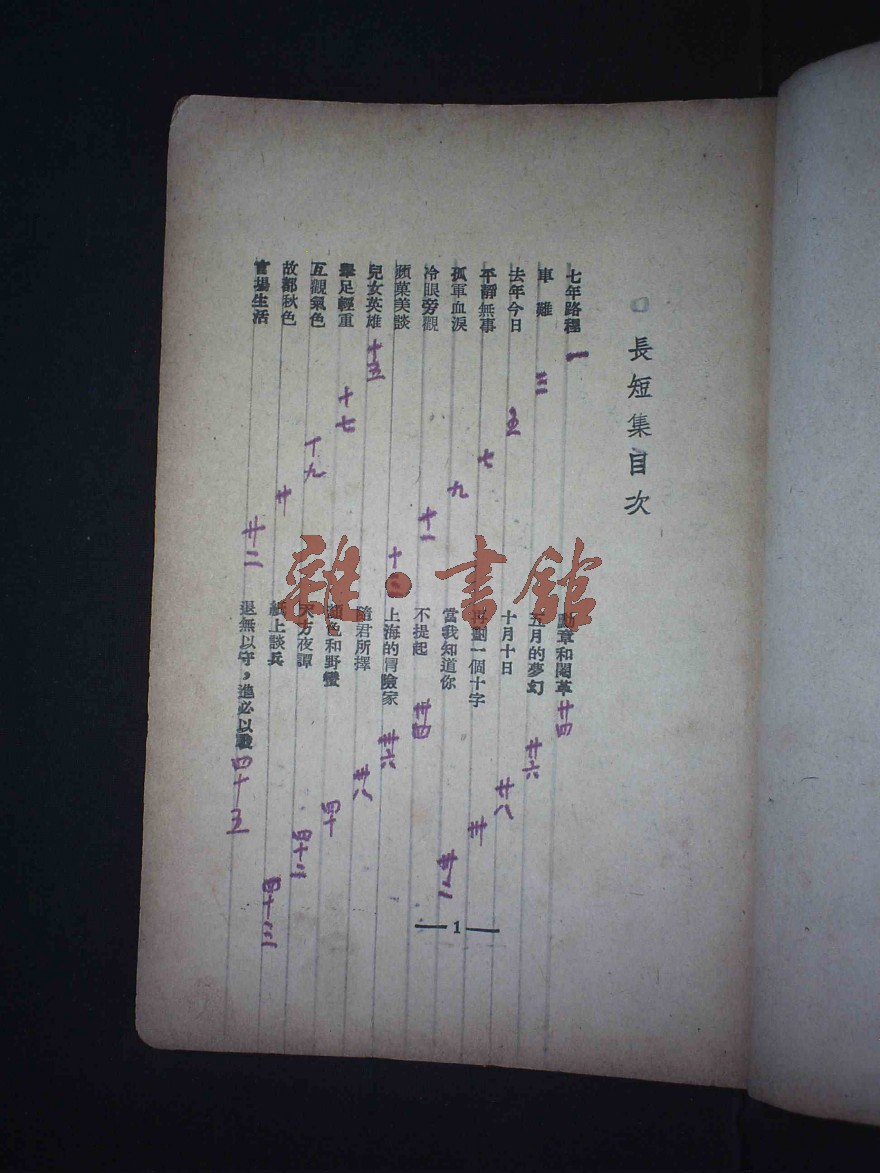 長短集目次
七年路程 一
車難 三
去年今日 五
平靜無事 七
孤軍血淚 九
冷眼旁觀 十一
菓美談 十三
兒女英雄 十五
舉足輕重 十七
互觀氣色 十九
故都秋色 廿
官場生活 廿二
章和革 廿四
五月的夢幻 廿六
十月十日 廿八
劃一個十字 卅
當我知道你 卅二
不提起 卅四
上海的冒險家 卅六
隨君所擇 卅八
顏色和野蠻 四十
天方夜譚 四十二
紙上談兵 四十三
退無以守，進必以戰 四十五
— 1 —
雜·書館